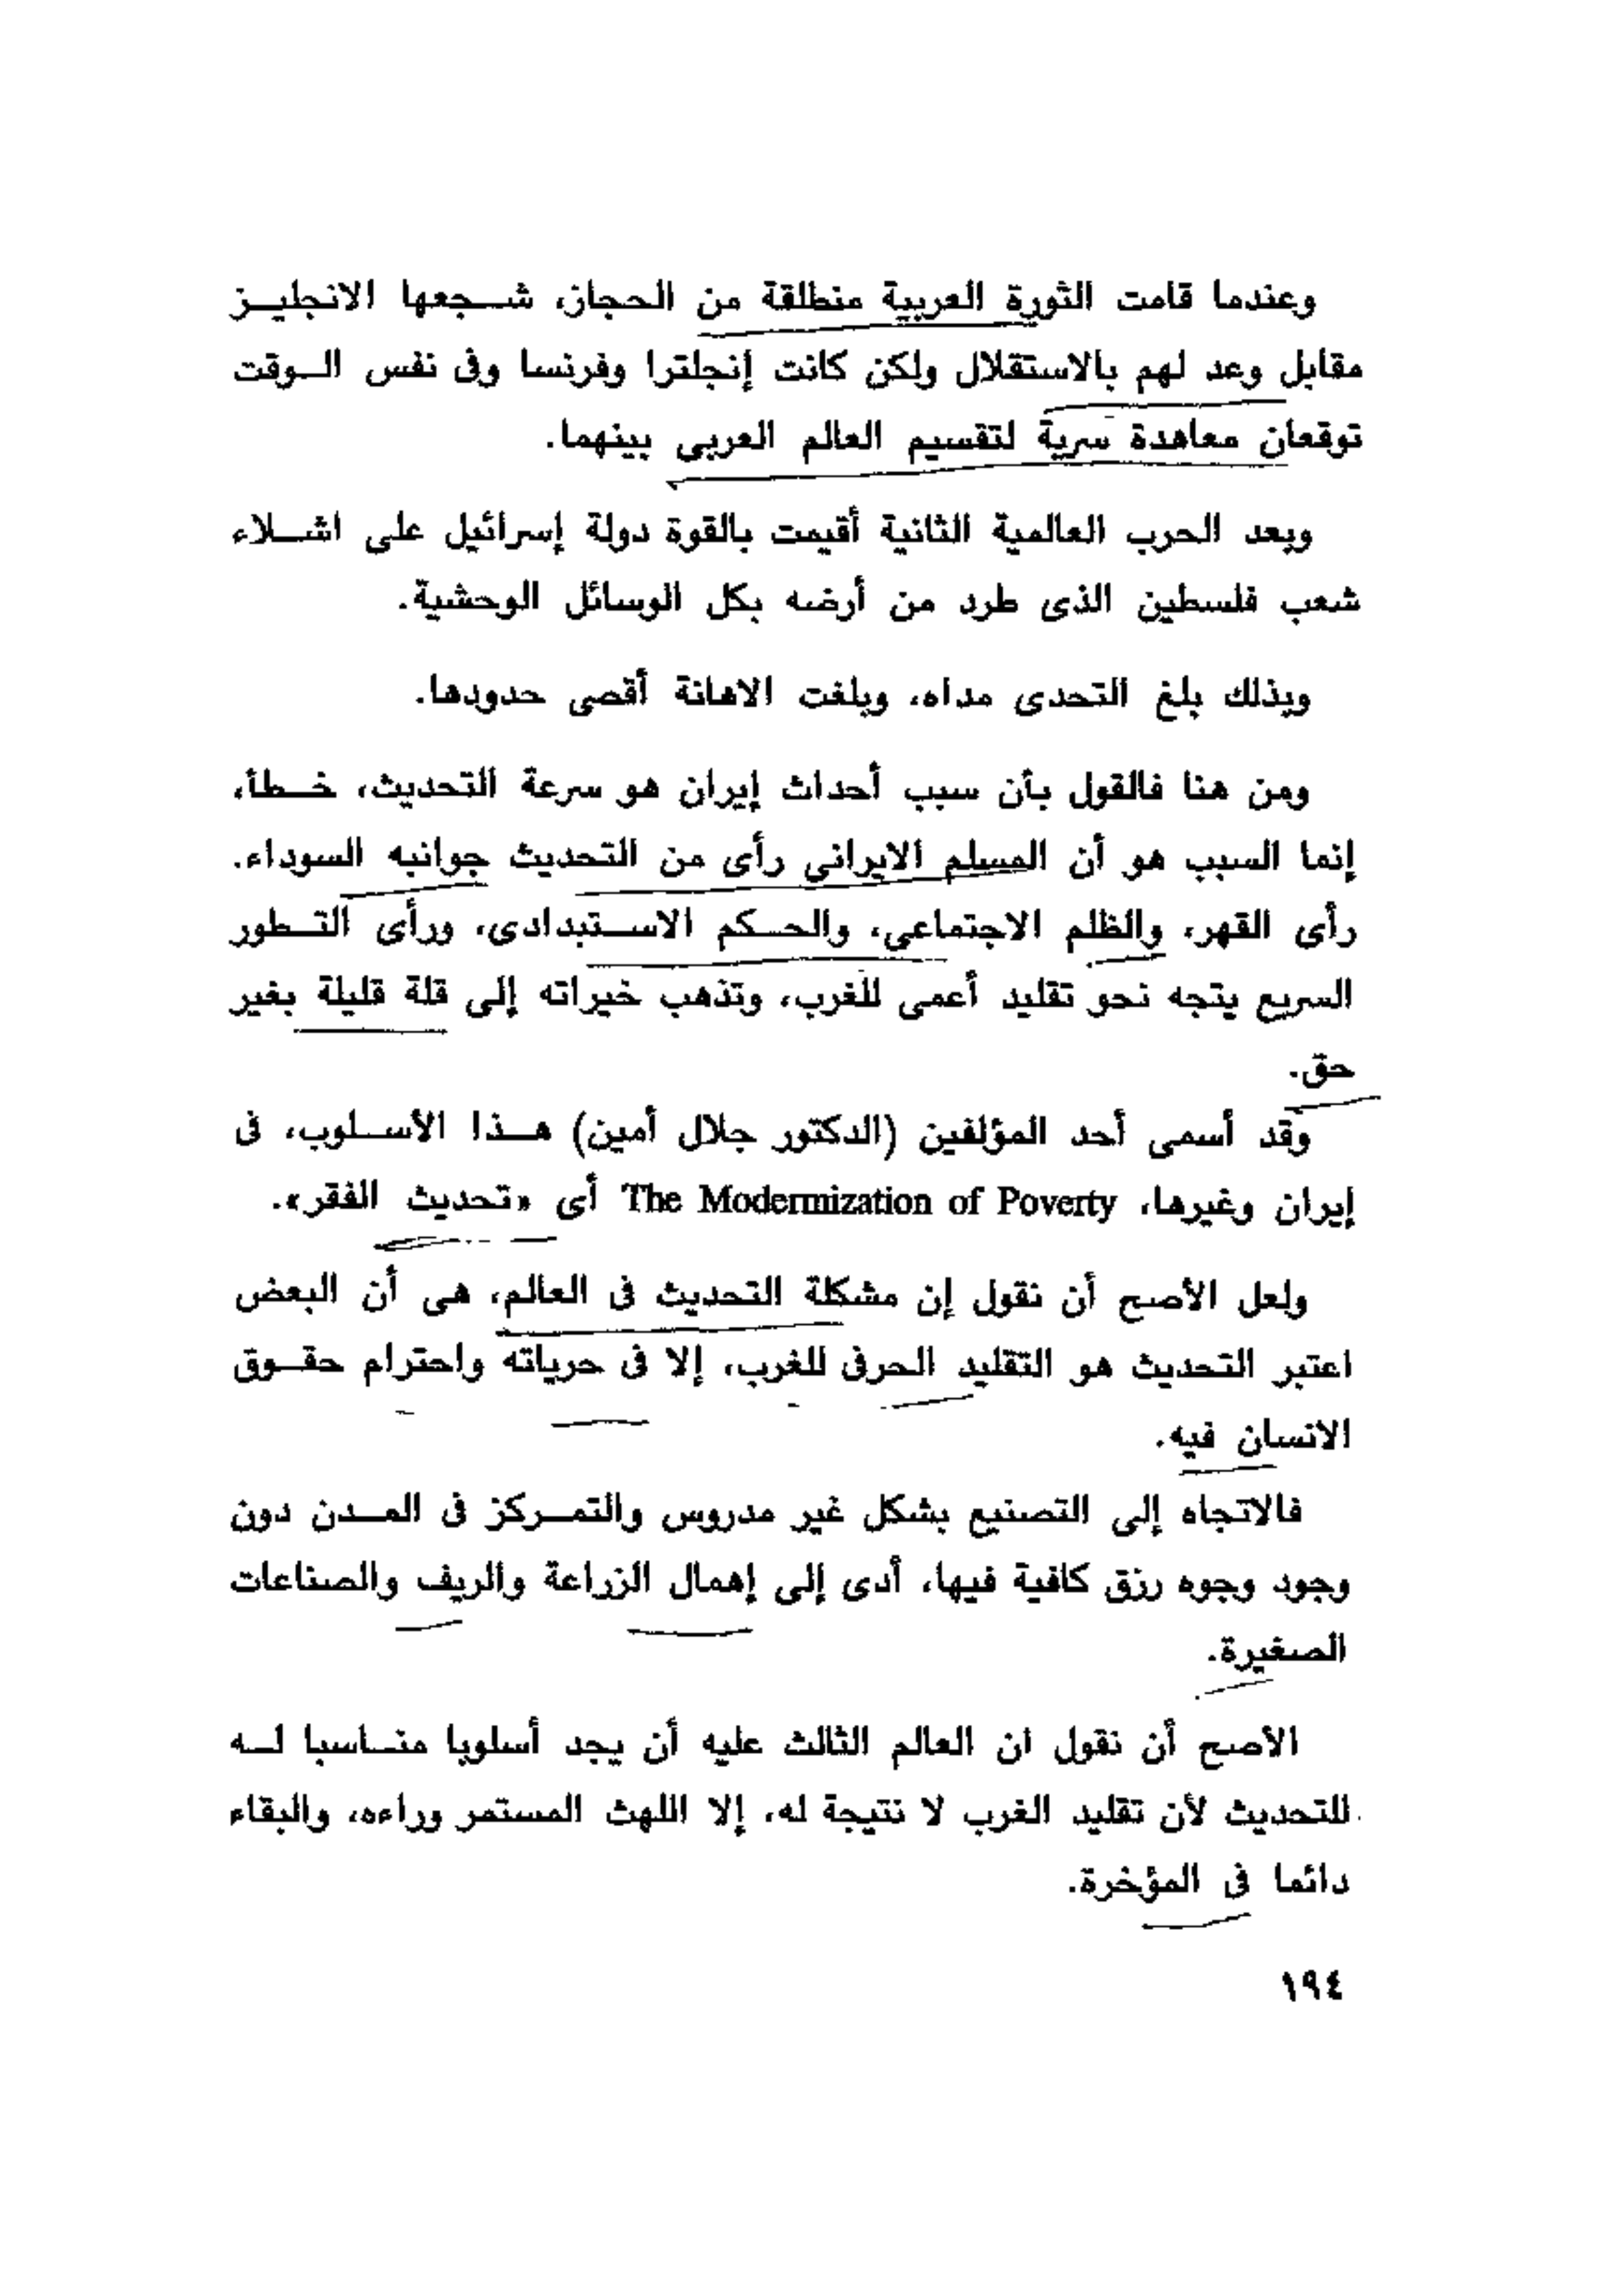 وعندما قامت الثورة العربية منطلقة من الحجاز، شجعها الانجليز
مقابل وعد لهم بالاستقلال ولكن كانت إنجلترا وفرنسا وفى نفس الوقت
توقعان معاهدة سرية لتقسيم العالم العربى بينهما.
وبعد الحرب العالمية الثانية أقيمت بالقوة دولة إسرائيل على اشلاء
شعب فلسطين الذى طرد من أرضه بكل الوسائل الوحشية.
وبذلك بلغ التحدى مداه، وبلغت الاهانة أقصى حدودها.
ومن هنا فالقول بأن سبب أحداث إيران هو سرعة التحديث، خطأ،
إنما السبب هو أن المسلم الايرانى رأى من التحديث جوانبه السوداء.
رأى القهر، والظلم الاجتماعى، والحكم الاستبدادى، ورأى التطور
السريع يتجه نحو تقليد أعمى للغرب، وتذهب خيراته إلى قلة قليلة بغير
حق.
وقد أسمى أحد المؤلفين (الدكتور جلال أمين) هذا الأسلوب، فى
إيران وغيرها، The Modernization of Poverty أى «تحديث الفقر».
ولعل الأصح أن نقول إن مشكلة التحديث فى العالم، هى أن البعض
اعتبر التحديث هو التقليد الحرفى للغرب، إلا فى حرياته واحترام حقوق
الانسان فيه.
فالاتجاه إلى التصنيع بشكل غير مدروس والتمركز فى المدن دون
وجود وجوه رزق كافية فيها، أدى إلى إهمال الزراعة والريف والصناعات
الصغيرة.
الأصح أن نقول ان العالم الثالث عليه أن يجد أسلوبا مناسبا له
للتحديث لأن تقليد الغرب لا نتيجة له، إلا اللهث المستمر وراءه، والبقاء
دائما فى المؤخرة.
١٩٤